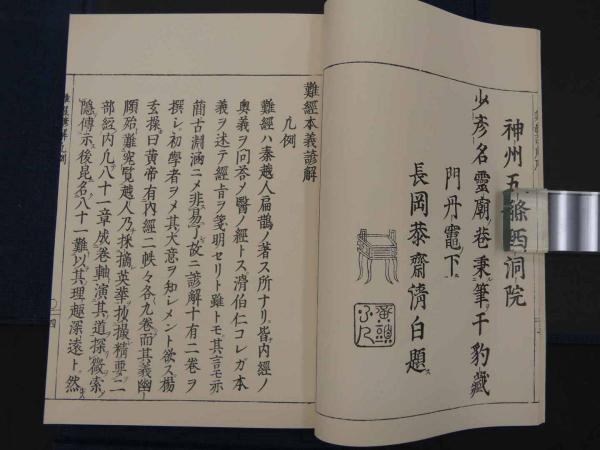 神州五條西洞院
少彦名靈廟巷秉筆于豹藏
門丹竈下
長岡恭齋淸白題
難經本義諺解
凡例
難經ハ秦越人扁鵲ノ著ス所ナリ皆内經ノ
奥義ヲ問荅メ醫ノ經トス滑伯仁コレガ本
義ヲ述テ經肯ヲ箋明セリト雖トモ其言モ亦
簡古淵涵ニメ非易了故ニ諺解十有二卷ヲ
撰レ初學者ヲメ其大意ヲ知レメント欲ス楊
玄操曰黄帝有内經二帙々各九卷而其義幽
頤殆難究覽越人乃採摘英華抜撮精要二
部經内凡八十一章成卷軸演其道探微索
隠傳示後昆名八十一難以其理趣深遠ト然
四